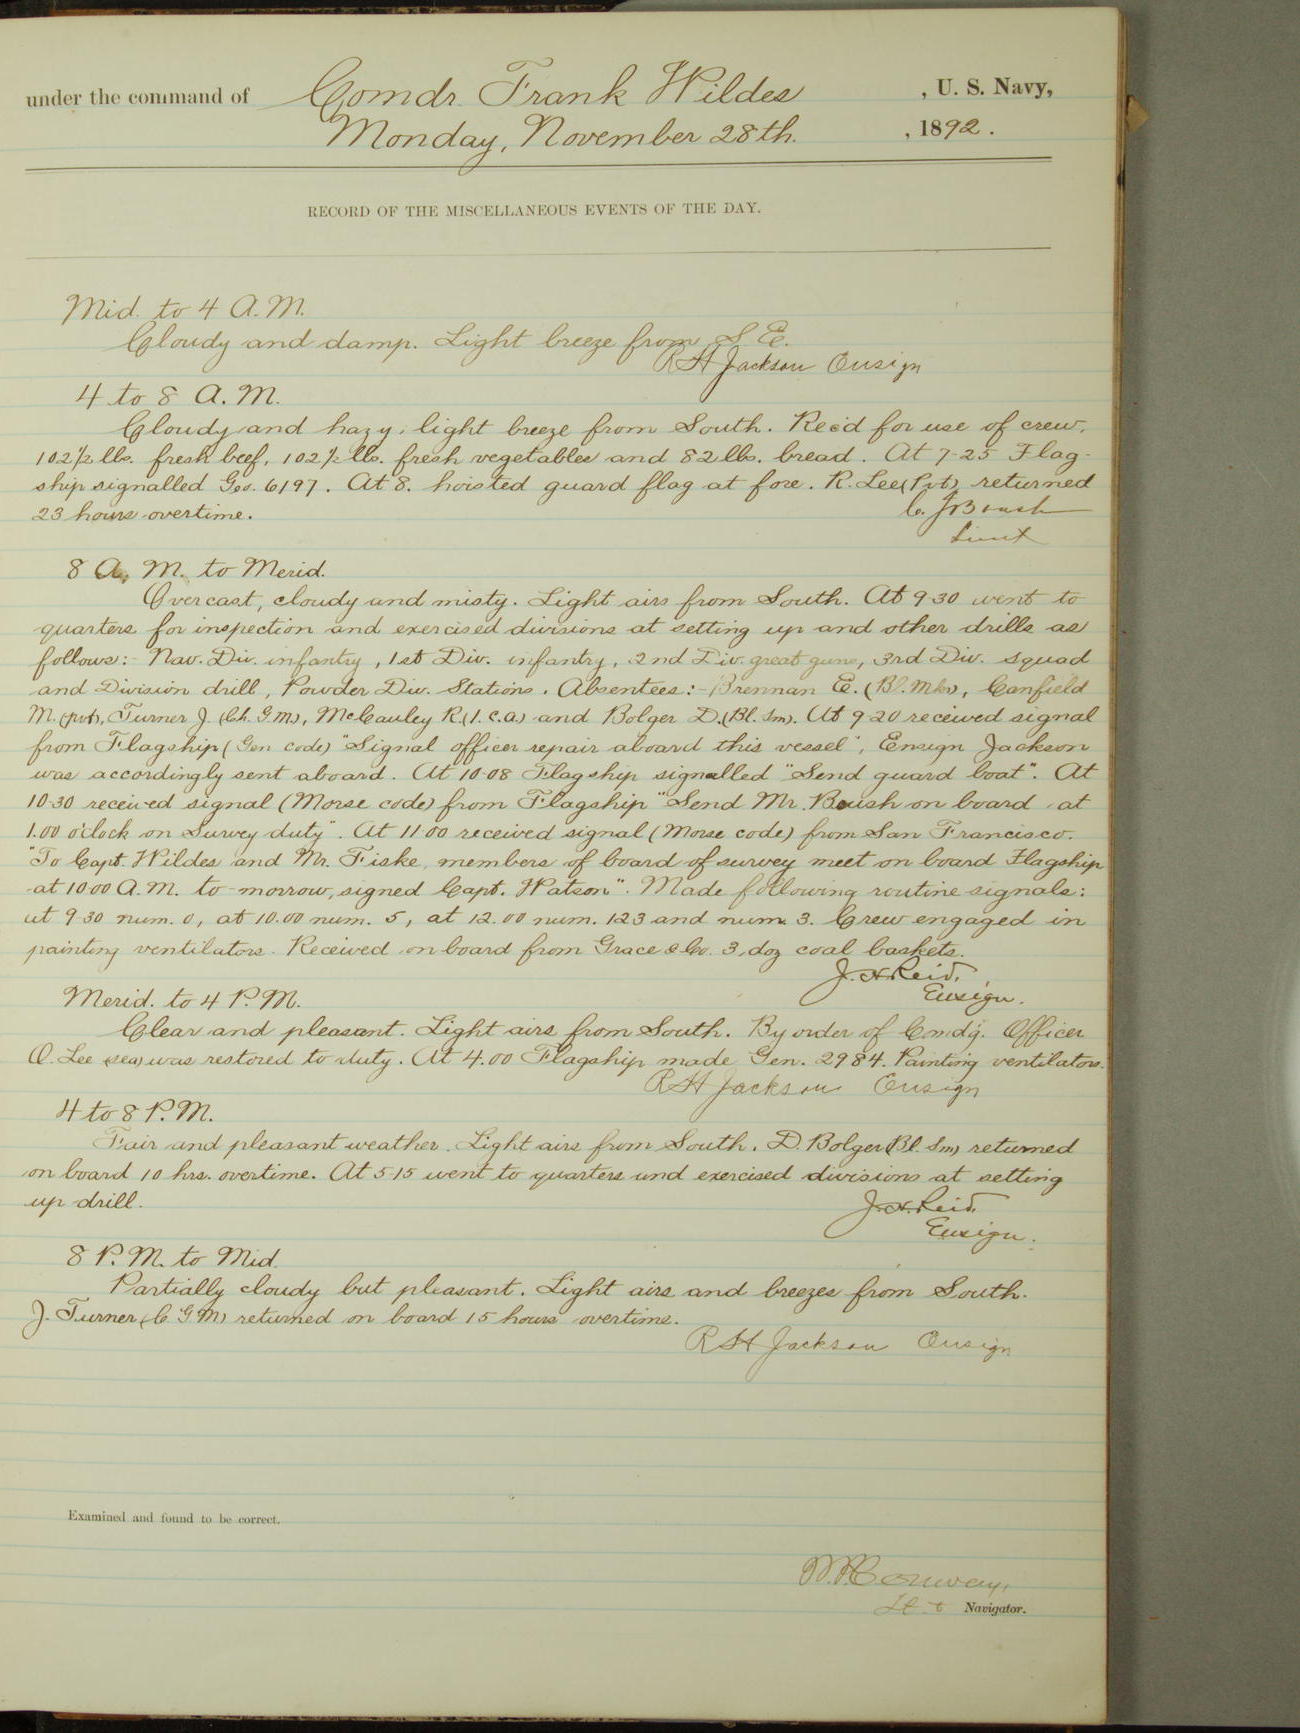 under the command of Comdr. Frank Wildes, U. S. Navy,
Monday, November 28th., 1892.
RECORD OF THE MISCELLANEOUS EVENTS OF THE DAY.
Mid. to 4 A.M.
Cloudy and damp. Light breeze from S E.
R H Jackson Ensign
4 to 8 A.M.
Cloudy and hazy, light breeze from South. Rec'd for use of crew,
102½ lbs. fresh beef, 102½ lbs. fresh vegetables and 82 lbs. bread. At 7-25 Flag-
ship signalled Geo. 6197. At 8. hoisted guard flag at fore. R. Lee (Pvt) returned
23 hours overtime.
C. J Boush
Lieut
8 A. M. to Merid.
Overcast, cloudy and misty. Light airs from South. At 9-30 went to
quarters for inspection and exercised divisions at setting up and other drills as
follows:- Nav. Div. infantry, 1st Div. infantry, 2nd Div. great guns, 3rd Div. squad
and Division drill, Powder Div. Stations. Absentees:- Brennan E. (Bl. Mkr), Canfield
M. (pvt), Turner J. (Ch. G.M), McCauley R. (1.C.a) and Bolger D. (Bl. Sm). At 9 20 received signal
from Flagship (Gen code) "Signal officer repair aboard this vessel", Ensign Jackson
was accordingly sent aboard. At 10-08 Flagship signalled "Send guard boat". At
10-30 received signal (Morse code) from Flagship "Send Mr. Boush on board at
1.00 o'clock on Survey duty". At 11 00 received signal (Morse code) from San Francisco.
"To Capt. Wildes and Mr. Fiske, members of board of survey meet on board Flagship
at 10 00 A.M. to-morrow, signed Capt. Watson". Made following routine signals:
at 9-30 num. 0, at 10.00 num. 5, at 12.00 num. 123 and num. 3. Crew engaged in
painting ventilators. Received on board from Grace & Co. 3, doz coal baskets.
J. H. Reid,
Ensign.
Merid. to 4 P.M.
Clear and pleasant. Light airs from South. By order of Comd'g. Officer
O. Lee (sea) was restored to duty. At 4.00 Flagship made Gen. 2984. Painting ventilators.
R H Jackson Ensign
4 to 8 P.M.
Fair and pleasant weather. Light airs from South. D. Bolger (Bl. Sm) returned
on board 10 hrs. overtime. At 5-15 went to quarters and exercised divisions at setting
up drill.
J. H. Reid,
Ensign.
8 P.M. to Mid.
Partially cloudy but pleasant. Light airs and breezes from South.
J. Turner (C. G M) returned on board 15 hours overtime.
R H Jackson Ensign
Examined and found to be correct.
Conway,
Lt Navigator.